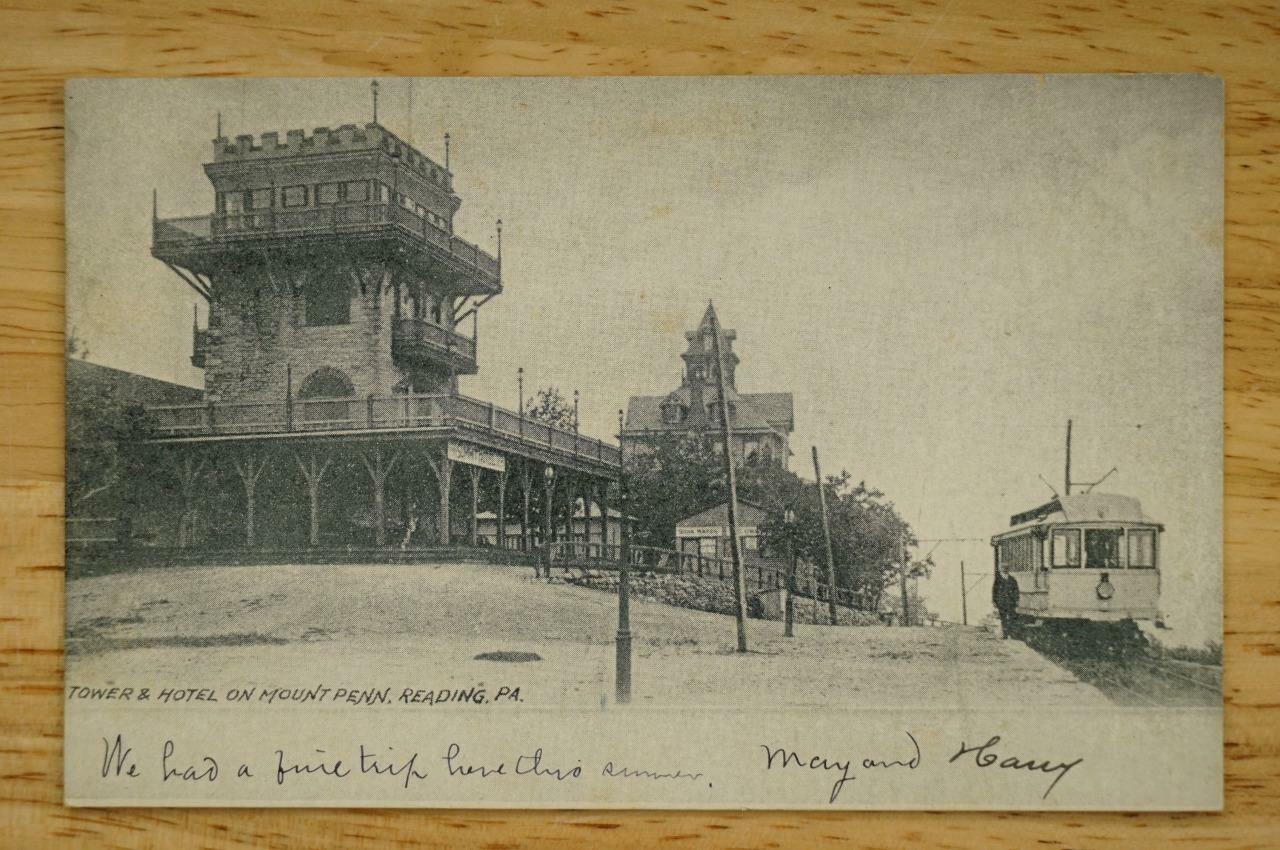 TOWER & HOTEL ON MOUNT PENN, READING, PA.
We had a fine trip here this summer. May and Harry